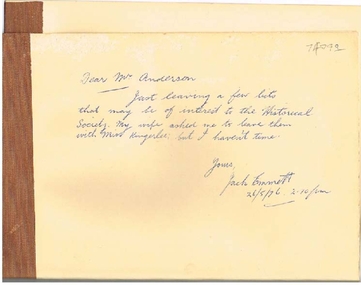 Dear Mr Anderson
Just leaving a few bits
that may be of interest to the Historical
Society. My wife asked me to leave them
with Miss but I haven't time
Yours,
Jack Emmett
26/5/76 2.10/pm